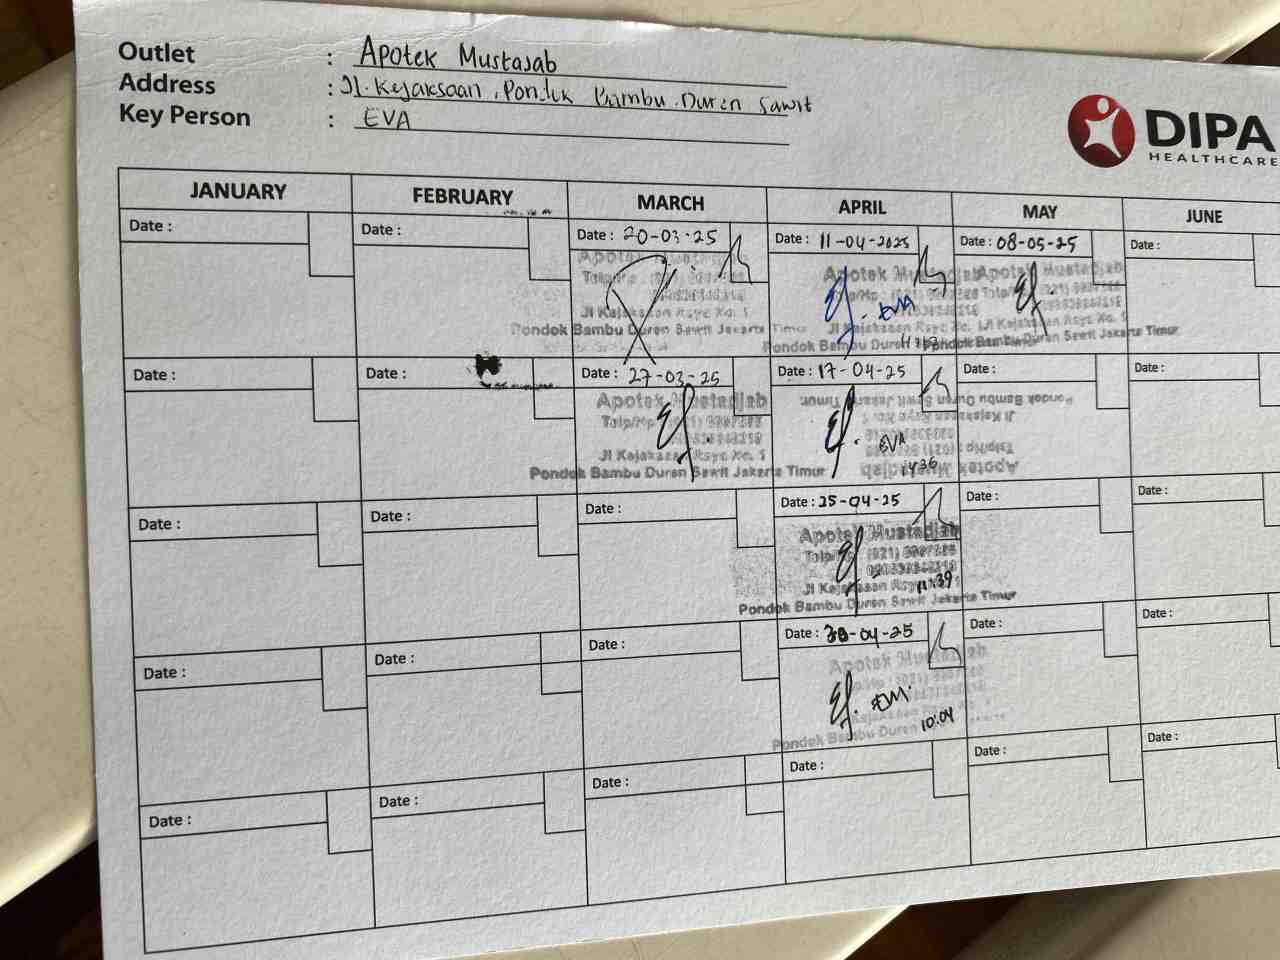 Outlet : Apotek Mustajab
Address : Jl. Kejaksaan, Pondok Bambu. Duren Sawit
Key Person : EVA
DIPA
HEALTHCARE
JANUARY FEBRUARY MARCH APRIL MAY JUNE
Date : Date : Date : 20-03-25 Date : 11-04-2025 Date : 08-05-25 Date :
Apotek Mustadjab Apotek Mustadjab Apotek Mustadjab
Telp/Hp : (021) Telp/Hp : (021)
EVA
Jl Kejaksaan Raya No. 1 Jl Kejaksaan Raya No. 1 Jl Kejaksaan Raya No. 1
Pondok Bambu Duren Sawit Jakarta Timur Pondok Bambu Duren Pondok Bambu Duren Sawit Jakarta Timur
Date : Date : Date : 27-03-25 Date : 17-04-25 Date : Date :
Apotek Mustadjab Pondok Bambu Duren Sawit Jakarta Timur
Telp/Hp (021) Jl Kejaksaan Raya No. 1
EVA
Jl Kejaksaan Raya No. 1 Telp/Hp (021)
Pondok Bambu Duren Sawit Jakarta Timur 1436 Apotek Mustadjab
Date : Date : Date : Date : 25-04-25 Date : Date :
Apotek Mustadjab
(021)
Jl Kejaksaan Raya 11:39
Pondok Bambu Duren Sawit Jakarta Timur
Date : Date : Date : Date : 30-04-25 Date : Date :
Apotek Mustadjab
(021)
Kejaksaan Raya
Pondok Bambu Duren 10:04
Date : Date : Date : Date : Date : Date :